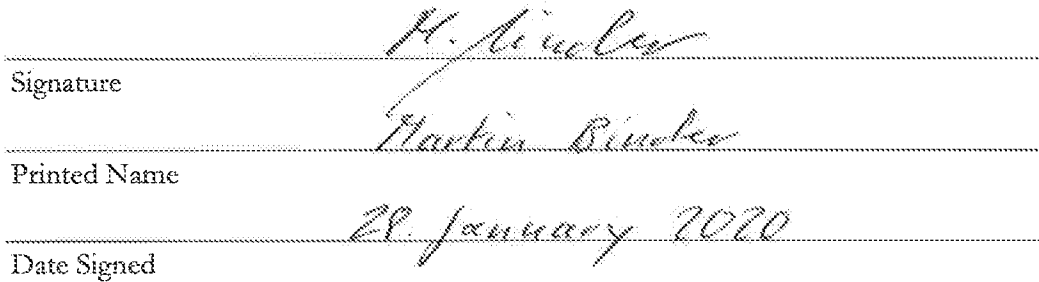 M. Binder
Signature
Martin Binder
Printed Name
28. January 2020
Date Signed